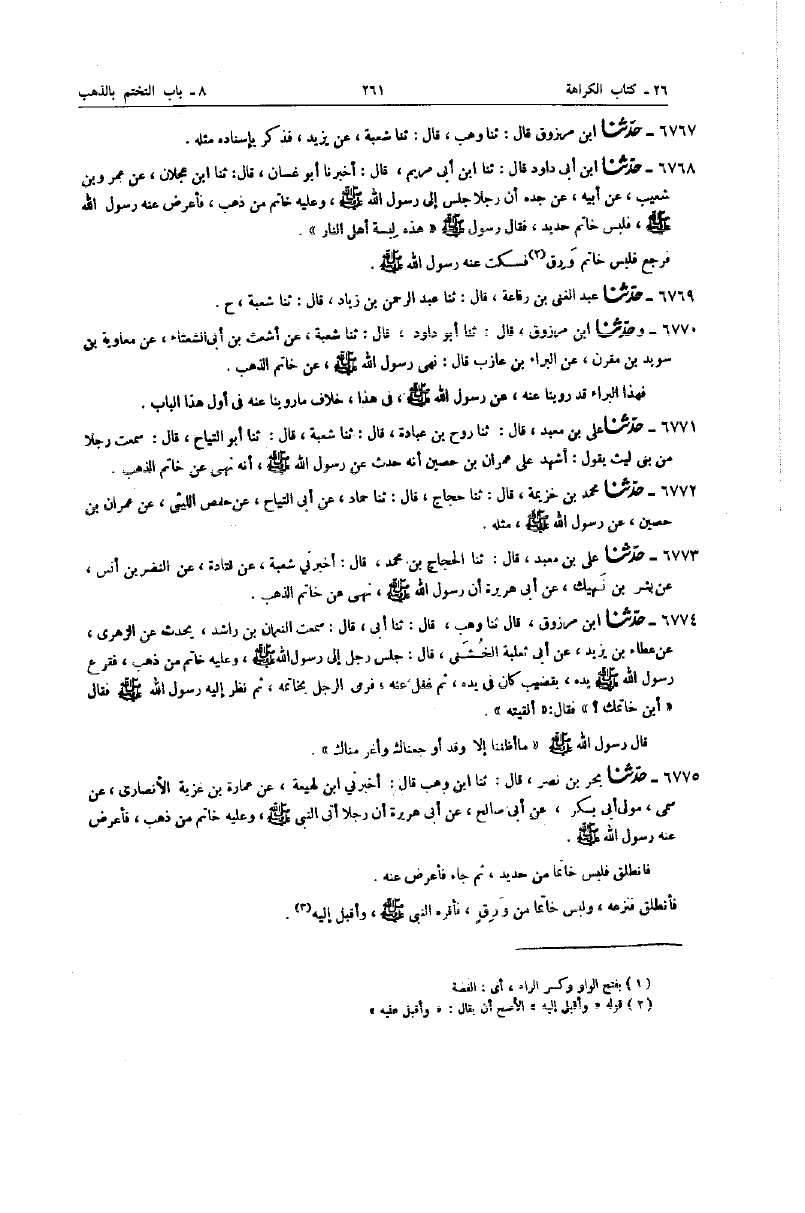 ٢٦ـ كتاب الكراهة ٢٦١ ٨ـ باب التختم بالذهب
٦٧٦٧ ـ حدثنا ابن مرزوق قال : ثنا وهب ، قال : ثنا شعبة ، عن يزيد ، فذكر بإسناده مثله .
٦٧٦٨ ـ حدثنا ابن أبى داود قال : ثنا ابن أبى مريم ، قال : أخبرنا أبو غسان ، قال: ثنا ابن عجلان ، عن عمرو بن
شعيب ، عن أبيه ، عن جده أن رجلا جلس إلى رسول الله ﷺ ، وعليه خاتم من ذهب ، فأعرض عنه رسول الله
ﷺ ، فلبس خاتم حديد ، فقال رسول ﷺ « هذه لبسة أهل النار » .
فرجع فلبس خاتم وَرِق(٢) فسكت عنه رسول الله ﷺ .
٦٧٦٩ ـ حدثنا عبد الغنى بن رفاعة ، قال : ثنا عبد الرحمن بن زياد ، قال : ثنا شعبة ، ح .
٦٧٧٠ ـ وحدثنا ابن مرزوق ، قال : ثنا أبو داود ، قال : ثنا شعبة ، عن أشعث بن أبى الشعثاء ، عن معاوية بن
سويد بن مقرن ، عن البراء بن عازب قال : نهى رسول الله ﷺ ، عن خاتم الذهب .
فهذا البراء قد روينا عنه ، عن رسول الله ﷺ ، فى هذا ، خلاف ماروينا عنه فى أول هذا الباب .
٦٧٧١ ـ حدثنا على بن معبد ، قال : ثنا روح بن عبادة ، قال : ثنا شعبة ، قال : ثنا أبو التياح ، قال : سمعت رجلا
من بنى ليث يقول : أشهد على عمران بن حصين أنه حدث عن رسول الله ﷺ ، أنه نهى عن خاتم الذهب .
٦٧٧٢ ـ حدثنا محمد بن خزيمة ، قال : ثنا حجاج ، قال : ثنا حماد ، عن أبى التياح ، عن حفص الليثى ، عن عمران بن
حصين ، عن رسول الله ﷺ ، مثله .
٦٧٧٣ ـ حدثنا على بن معبد ، قال : ثنا الحجاج بن محمد ، قال : أخبرنى شعبة ، عن قتادة ، عن النضر بن أنس ،
عن بشر بن نَهيك ، عن أبى هريرة أن رسول الله ﷺ ، نهى عن خاتم الذهب .
٦٧٧٤ ـ حدثنا ابن مرزوق ، قال ثنا وهب ، قال : ثنا أبى ، قال : سمعت النعمان بن راشد ، يحدث عن الزهرى ،
عن عطاء بن يزيد ، عن أبى ثعلبة الخُشَنى ، قال : جلس رجل إلى رسول الله ﷺ ، وعليه خاتم من ذهب ، فقرع
رسول الله ﷺ يده ، بقضيب كان فى يده ، ثم غفل عنه ، فرمى الرجل بخاتمه ، ثم نظر إليه رسول الله ﷺ فقال
« أين خاتمك ؟ » فقال: « ألقيته » .
قال رسول الله ﷺ « ماأظننا إلا وقد أوجعناك وأغرمناك » .
٦٧٧٥ ـ حدثنا بحر بن نصر ، قال : ثنا ابن وهب قال : أخبرنى ابن لهيعة ، عن عمارة بن غزية الأنصارى ، عن
سمى ، مولى أبى بكر ، عن أبى صالح ، عن أبى هريرة أن رجلا أتى النبى ﷺ ، وعليه خاتم من ذهب ، فأعرض
عنه رسول الله ﷺ .
فانطلق فلبس خاتما من حديد ، ثم جاء فأعرض عنه .
فأنطلق فنزعه ، ولبس خاتما من وَرِقٍ ، فأقره النبى ﷺ ، وأقبل إليه(٣) .
(١) بفتح الواو وكسر الراء ، أى : الفضة
(٢) قوله « وأقبل إليه » الأصح أن يقال : « وأقبل عليه »